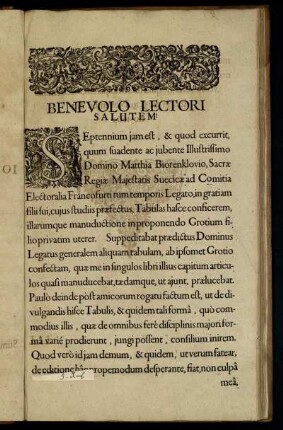 BENEVOLO LECTORI
SALUTEM
SEptennium jam est, & quod excurrit,
quum suadente ac jubente Illustrissimo
Domino Matthia Biorenklovio, Sacræ
Regiæ Majestatis Suecicæ ad Comitia
Electoralia Francofurti tum temporis Legato, in gratiam
filii sui, cujus studiis præfectus, Tabulas hasce conficerem,
illarumque manuductione in proponendo Grotium fi-
lio privatim uterer. Suppeditabat prædictus Dominus
Legatus generalem aliquam tabulam, ab ipsomet Grotio
confectam, quæ me in singulos libri illius capitum articu-
los quasi manuducebat, tædamque, ut ajunt, prælucebat.
Paulo deinde pòst amicorum rogatu factum est, ut de di-
vulgandis hisce Tabulis, & quidem tali formâ, quò com-
modius illis, quæ de omnibus ferè disciplinis majori for-
mâ variè prodierunt, jungi possent, consilium inirem.
Quod verò id jam demum, & quidem, ut verum fatear,
de editione propemodum desperante, fiat, non culpâ
meâ,